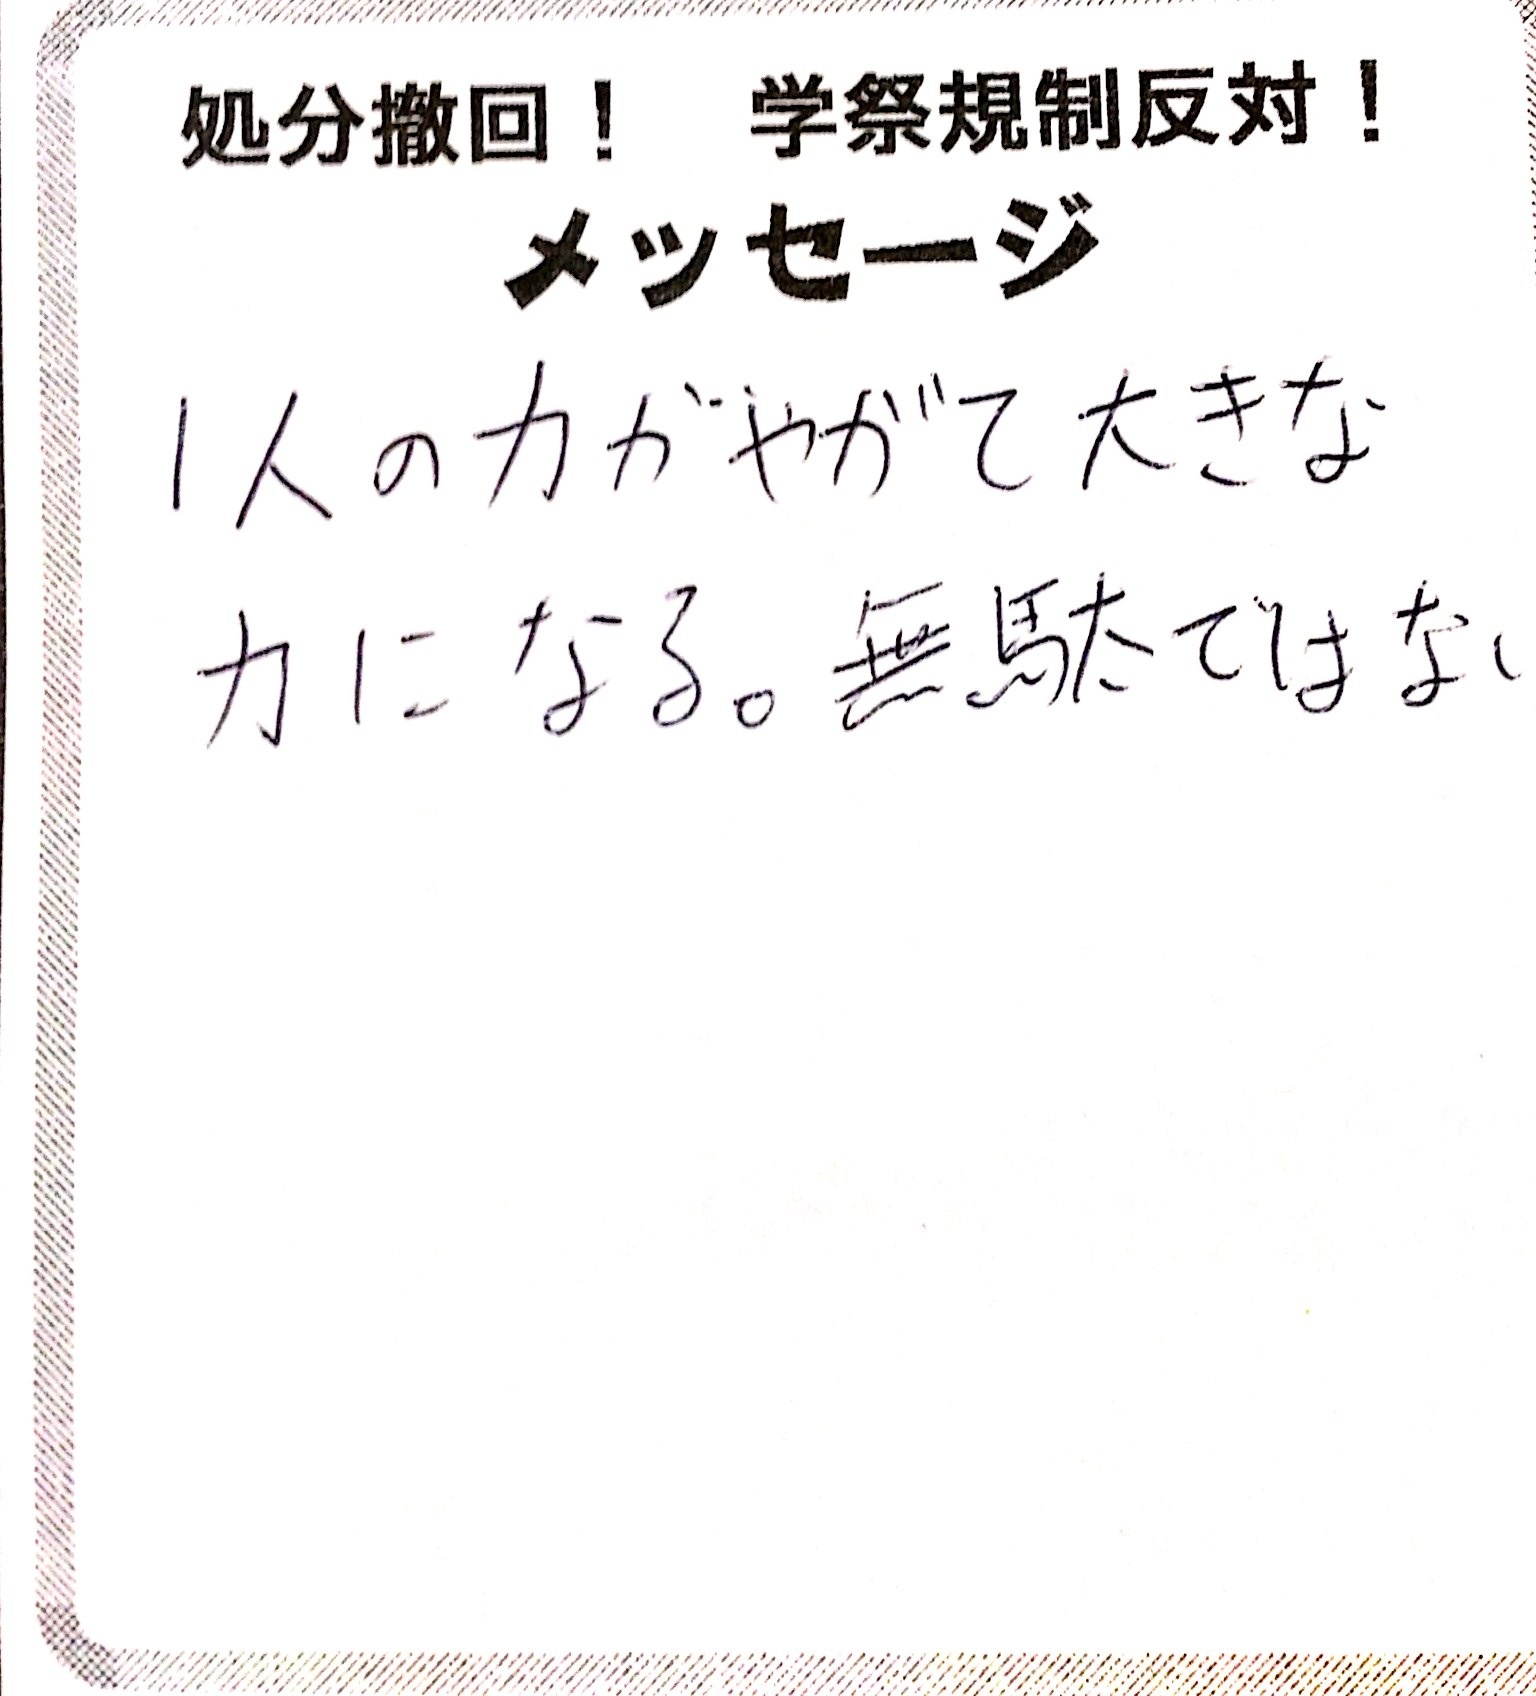 処分撤回！　学祭規制反対！
メッセージ
1人の力がやがて大きな
力になる。無駄ではない